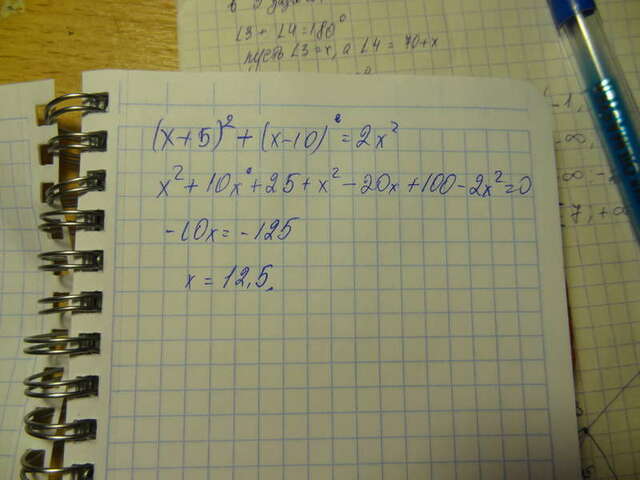 ∠3 + ∠4 = 180°
пусть ∠3 = x, а ∠4 = 70+x
(x+5)² + (x-10)² = 2x²
x² + 10x + 25 + x² - 20x + 100 - 2x² = 0
-10x = -125
x = 12,5.